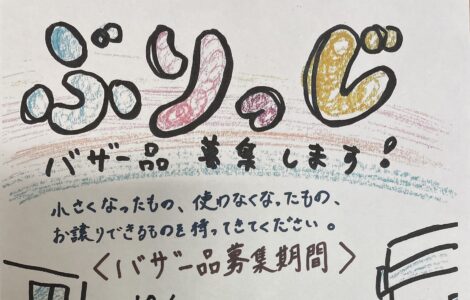 ぶりっじ
バザー品 募集します!
小さくなったもの、使わなくなったもの、
お譲りできるものを持ってきてください。
<バザー品募集期間>